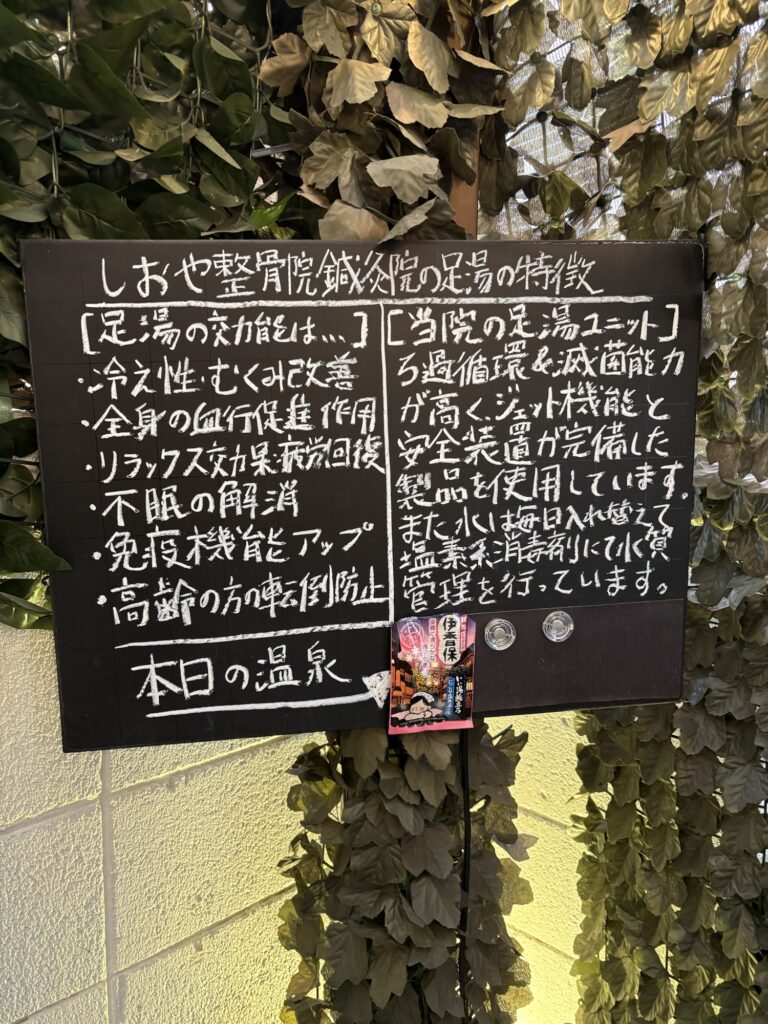 しおや整骨院鍼灸院の足湯の特徴
[足湯の効能は...]
・冷え性・むくみ改善
・全身の血行促進作用
・リラックス効果疲労回復
・不眠の解消
・免疫機能アップ
・高齢の方の転倒防止
[当院の足湯ユニット]
ろ過循環&滅菌能力
が高く、ジェット機能と
安全装置が完備した
製品を使用しています。
また水は毎日入れ替えて
塩素系消毒剤にて水質
管理を行っています。
本日の温泉
伊香保